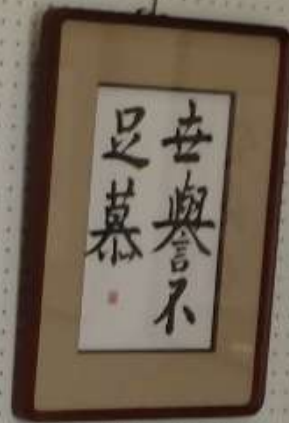 世譽不
足慕